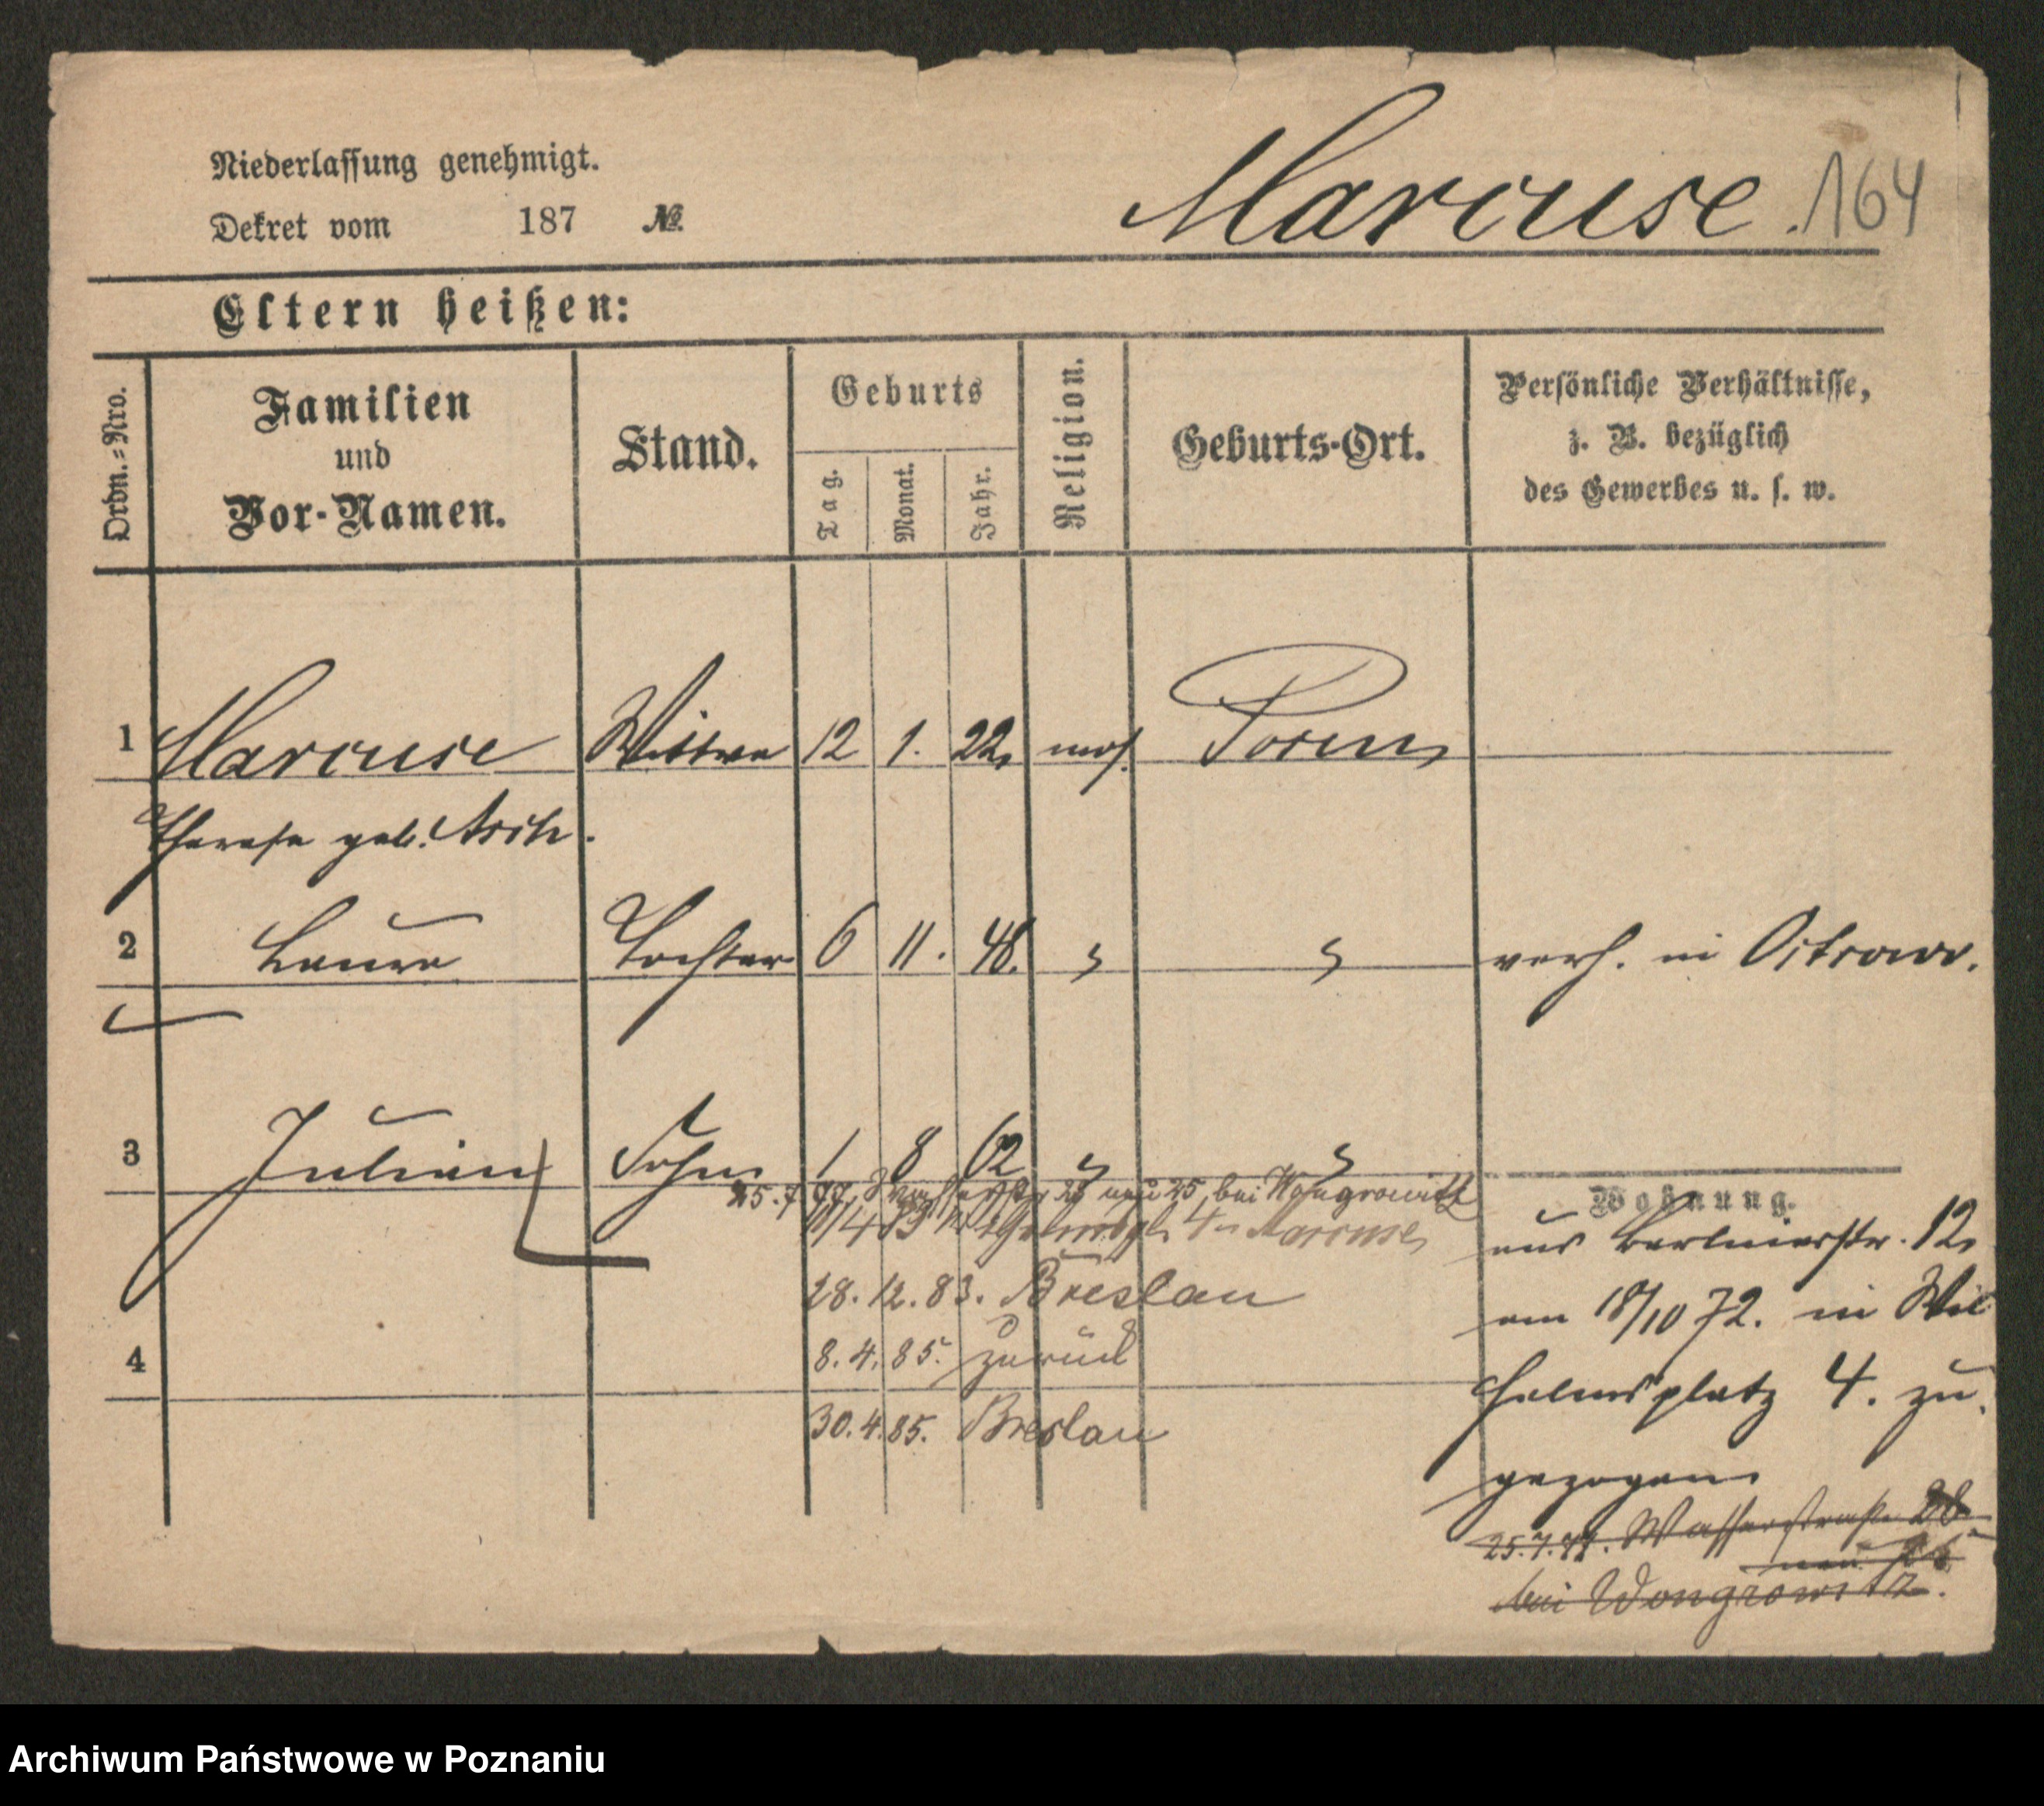 Niederlassung genehmigt.
Dekret vom 187 №
Marcuse. 164
Eltern heißen:
Ordn.-Nro.
Familien
und
Vor-Namen.
Stand.
Geburts
Tag.
Monat.
Jahr.
Religion.
Geburts-Ort.
Persönliche Verhältnisse,
z. B. bezüglich
des Gewerbes u. s. w.
1 Marcuse Wittwe 12 1. 22. mos. Posen
Therese geb. Asch.
2 Laura Tochter 6 11. 48. " " verh. in Ostrowo.
3 Julian Sohn 1 8 62 " "
25.7.77. Wasserstr 28 neu 25, bei Wongrowitz
11/4 83 Wilhelmspl. 4 Marcuse
28. 12. 83. Breslau
4 8. 4. 85. zurück
30. 4. 85. Breslau
Wohnung.
aus Berlinerstr. 12.
am 18/10 72. in Wil
helmsplatz 4. zu
gezogen
25.7.77. Wasserstraße 28
neu 25
bei Wongrowitz.
Archiwum Państwowe w Poznaniu